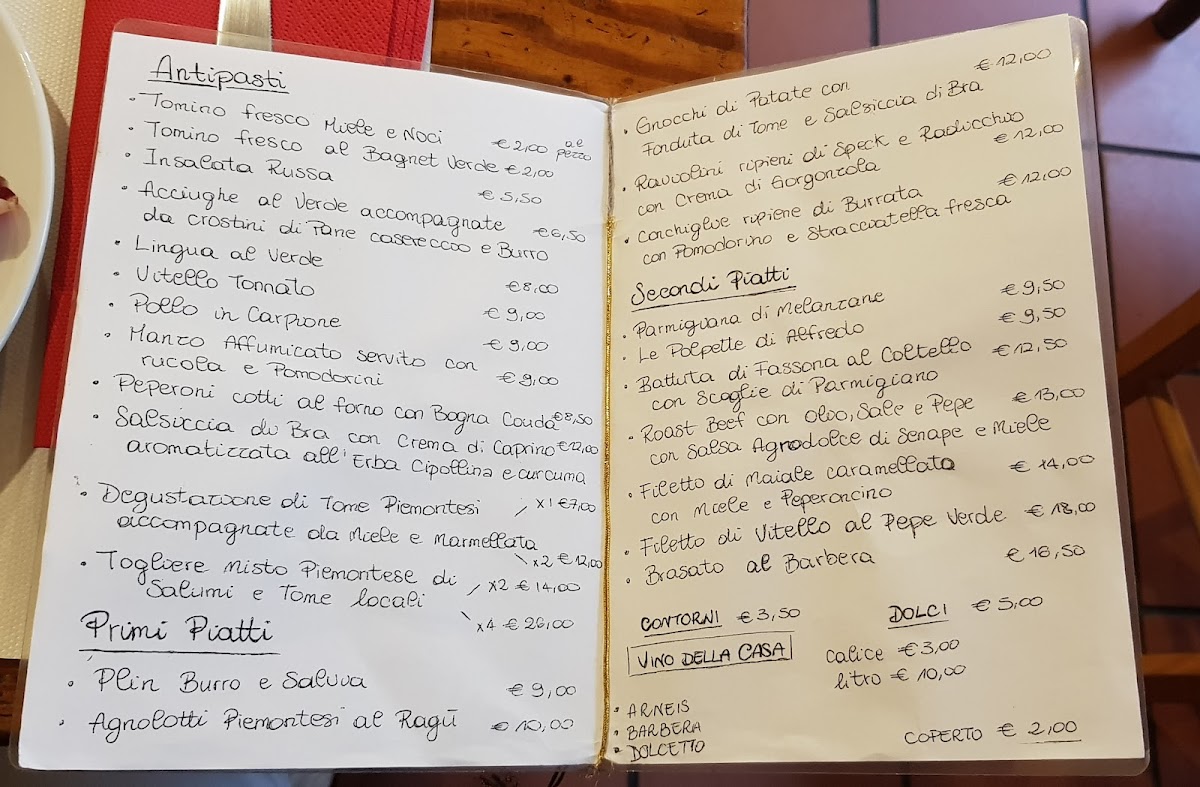 Antipasti
• Tomino fresco Miele e Noci € 2,00 al pezzo
• Tomino fresco al Bagnet Verde € 2,00
• Insalata Russa € 5,50
• Acciughe al Verde accompagnate
da crostini di Pane casereccio e Burro € 6,50
• Lingua al Verde € 8,00
• Vitello Tonnato € 9,00
• Pollo in Carpione € 9,00
• Manzo Affumicato servito con
rucola e Pomodorini € 9,00
• Peperoni cotti al forno con Bagna Couda € 8,50
• Salsiccia di Bra con Crema di Caprino € 12,00
aromatizzata all'Erba Cipollina e curcuma
• Degustazione di Tome Piemontesi x1 € 7,00
accompagnate da Miele e Marmellata x2 € 12,00
• Togliere Misto Piemontese di x2 € 14,00
Salumi e Tome locali x4 € 26,00
Primi Piatti
• Plin Burro e Salvia € 9,00
• Agnolotti Piemontesi al Ragù € 10,00
• Gnocchi di Patate con € 12,00
Fonduta di Tome e Salsiccia di Bra
• Raviolini ripieni di Speck e Radicchio
con Crema di Gorgonzola € 12,00
• Conchiglie ripiene di Burrata € 12,00
con Pomodorino e Stracciatella fresca
Secondi Piatti
• Parmigiana di Melanzane € 9,50
• Le Polpette di Alfredo € 9,50
• Battuta di Fassona al Coltello € 12,50
con Scaglie di Parmigiano
• Roast Beef con Olio, Sale e Pepe € 13,00
con Salsa Agrodolce di Senape e Miele
• Filetto di Maiale caramellato € 14,00
con Miele e Peperoncino
• Filetto di Vitello al Pepe Verde € 18,00
• Brasato al Barbera € 16,50
CONTORNI € 3,50
DOLCI € 5,00
VINO DELLA CASA
calice € 3,00
litro € 10,00
• ARNEIS
• BARBERA
• DOLCETTO
COPERTO € 2,00